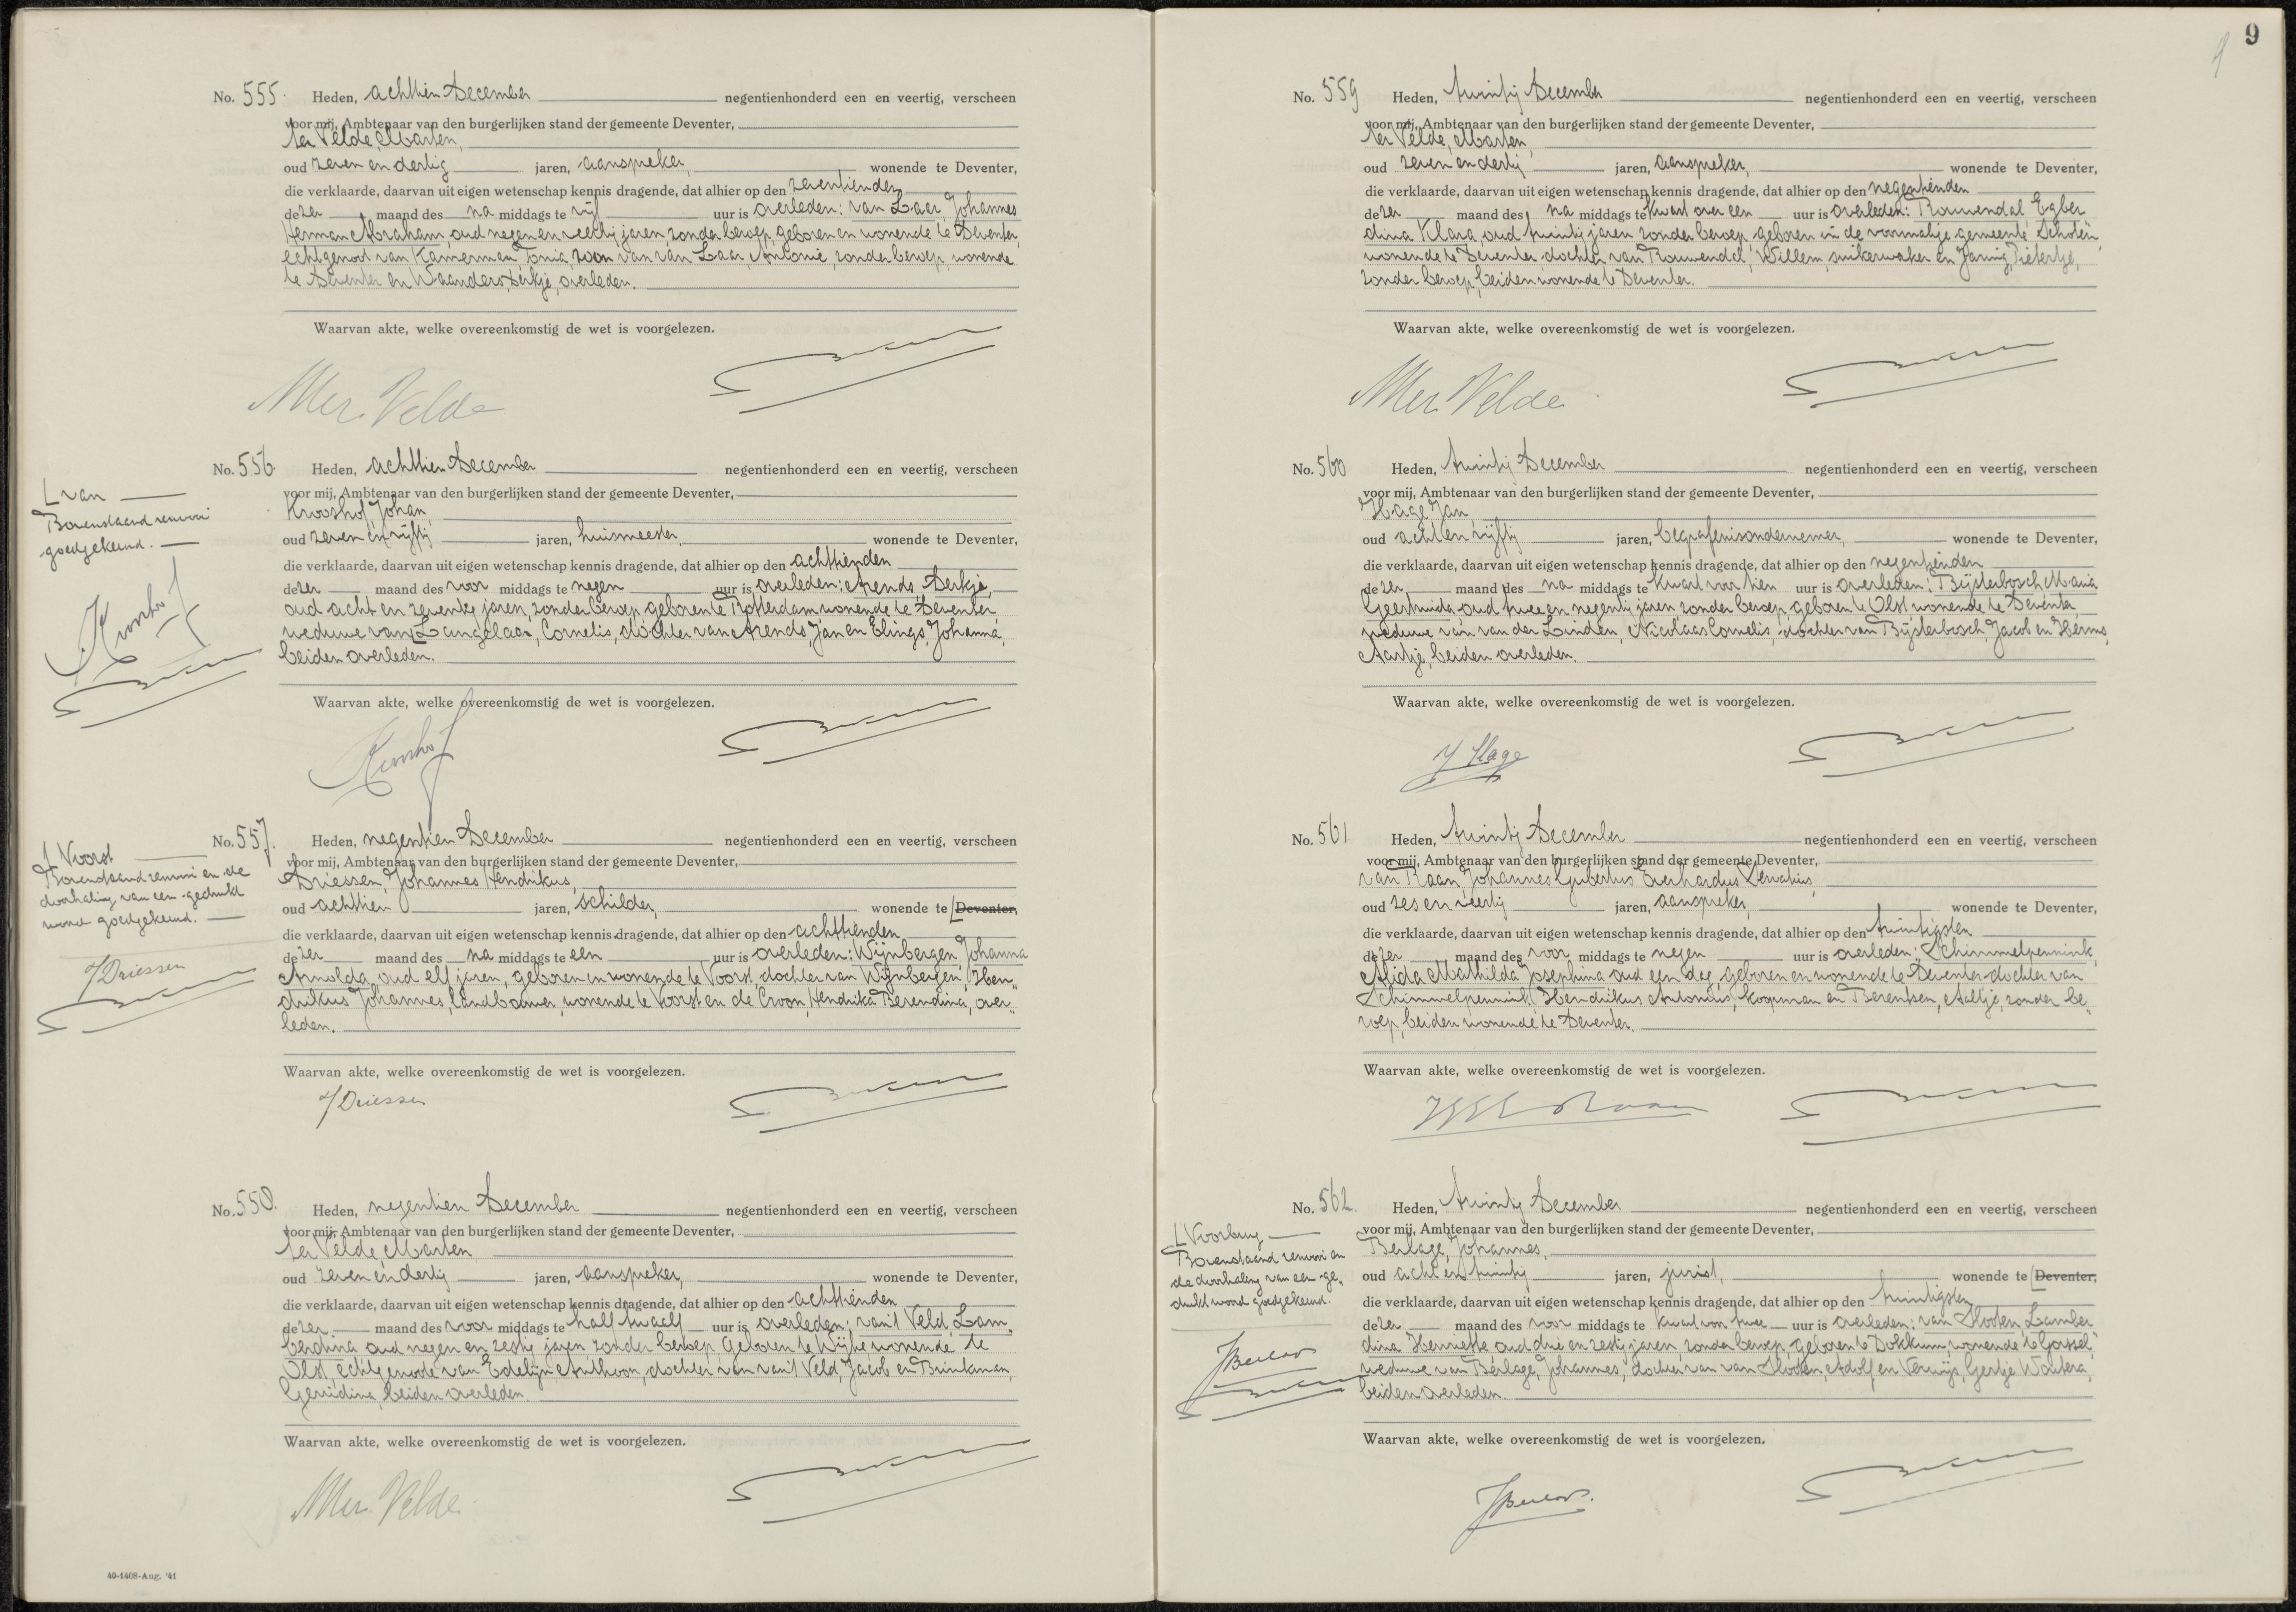 No. 555. Heden, achttien December negentienhonderd een en veertig, verscheen
voor mij, Ambtenaar van den burgerlijken stand der gemeente Deventer,
ter Velde, Marten,
oud zeven en dertig jaren, aanspreker, wonende te Deventer,
die verklaarde, daarvan uit eigen wetenschap kennis dragende, dat alhier op den zeventienden
dezer maand des na middags te vijf uur is overleden: van Laar, Johannes
Herman Abraham, oud negen en veertig jaren, zonder beroep, geboren en wonende te Deventer,
echtgenoot van Kamerman, Tonia, zoon van van Laar, Antonie, zonder beroep, wonende
te Deventer en Waanders, Derkje, overleden.
Waarvan akte, welke overeenkomstig de wet is voorgelezen.
M ter Velde
No. 556. Heden, achttien December negentienhonderd een en veertig, verscheen
voor mij, Ambtenaar van den burgerlijken stand der gemeente Deventer,
Krooshof, Johan,
oud zeven en vijftig jaren, huismeester, wonende te Deventer,
die verklaarde, daarvan uit eigen wetenschap kennis dragende, dat alhier op den achttienden
dezer maand des voor middags te negen uur is overleden: Arends, Derkje,
oud acht en zeventig jaren, zonder beroep, geboren te Rotterdam, wonende te Deventer,
weduwe van Langelaar, Cornelis, dochter van Arends, Jan en Elings, Johanna,
beiden overleden.
Waarvan akte, welke overeenkomstig de wet is voorgelezen.
Krooshof
van
Bovenstaand renvooi
goedgekeurd.
Krooshof
No. 557. Heden, negentien December negentienhonderd een en veertig, verscheen
voor mij, Ambtenaar van den burgerlijken stand der gemeente Deventer,
Driessen, Johannes Hendrikus,
oud achttien jaren, schilder, wonende te Deventer,
die verklaarde, daarvan uit eigen wetenschap kennis dragende, dat alhier op den achttienden
dezer maand des na middags te een uur is overleden: Wijnbergen, Johanna
Arnolda, oud elf jaren, geboren en wonende te Voorst, dochter van Wijnbergen, Hen„
drikus Johannes, landbouwer, wonende te Voorst en de Croon, Hendrika Berendina, over„
leden.
Waarvan akte, welke overeenkomstig de wet is voorgelezen.
J Driessen
Voorst
Bovenstaand renvooi en de
doorhaling van een gedrukt
woord goedgekeurd.
J Driessen
No. 558. Heden, negentien December negentienhonderd een en veertig, verscheen
voor mij, Ambtenaar van den burgerlijken stand der gemeente Deventer,
ter Velde, Marten
oud zeven en dertig jaren, aanspreker, wonende te Deventer,
die verklaarde, daarvan uit eigen wetenschap kennis dragende, dat alhier op den achttienden
dezer maand des voor middags te half twaalf uur is overleden: van 't Veld, Lam„
berdina, oud negen en zestig jaren, zonder beroep, geboren te Wijhe, wonende te
Olst, echtgenoote van Edelijn, Anthoon, dochter van van 't Veld, Jacob en Brinkman,
Gerridina, beiden overleden.
Waarvan akte, welke overeenkomstig de wet is voorgelezen.
M ter Velde
40-1408-Aug. '41
9
No. 559 Heden, twintig December negentienhonderd een en veertig, verscheen
voor mij, Ambtenaar van den burgerlijken stand der gemeente Deventer,
ter Velde, Marten,
oud zeven en dertig jaren, aanspreker, wonende te Deventer,
die verklaarde, daarvan uit eigen wetenschap kennis dragende, dat alhier op den negentienden
dezer maand des na middags te kwart over een uur is overleden: Rouwendal, Egber
dina Klara, oud twintig jaren, zonder beroep, geboren in de voormalige gemeente Schoten,
wonende te Deventer, dochter van Rouwendal, Willem, suikerwaker en Jaring, Pietertje,
zonder beroep, beiden wonende te Deventer.
Waarvan akte, welke overeenkomstig de wet is voorgelezen.
M ter Velde
No. 560 Heden, twintig December negentienhonderd een en veertig, verscheen
voor mij, Ambtenaar van den burgerlijken stand der gemeente Deventer,
Hage, Jan,
oud acht en vijftig jaren, begrafenisondernemer, wonende te Deventer,
die verklaarde, daarvan uit eigen wetenschap kennis dragende, dat alhier op den negentienden
dezer maand des na middags te kwart voor tien uur is overleden: Bijsterbosch, Maria
Geertruida, oud twee en negentig jaren, zonder beroep, geboren te Olst, wonende te Deventer,
weduwe van van der Linden, Nicolaas Cornelis, dochter van Bijsterbosch, Jacob en Herms,
Aartje, beiden overleden.
Waarvan akte, welke overeenkomstig de wet is voorgelezen.
J Hage
No. 561 Heden, twintig December negentienhonderd een en veertig, verscheen
voor mij, Ambtenaar van den burgerlijken stand der gemeente Deventer,
van Raan, Johannes Gijbertus Everhardus Servatius,
oud zes en veertig jaren, aanspreker, wonende te Deventer,
die verklaarde, daarvan uit eigen wetenschap kennis dragende, dat alhier op den twintigsten
dezer maand des voor middags te negen uur is overleden: Schimmelpennink,
Alida Mathilda Josephina, oud een dag, geboren en wonende te Deventer, dochter van
Schimmelpennink, Hendrikus Antonius, koopman en Berentsen, Aaltje, zonder be„
roep, beiden wonende te Deventer.
Waarvan akte, welke overeenkomstig de wet is voorgelezen.
No. 562. Heden, twintig December negentienhonderd een en veertig, verscheen
voor mij, Ambtenaar van den burgerlijken stand der gemeente Deventer,
Berlage, Johannes,
oud acht en twintig jaren, jurist, wonende te Deventer,
die verklaarde, daarvan uit eigen wetenschap kennis dragende, dat alhier op den twintigsten
dezer maand des voor middags te kwart voor twee uur is overleden: van Slooten, Lamber
dina Henriette, oud drie en zestig jaren, zonder beroep, geboren te Dokkum, wonende te Gorssel,
weduwe van Berlage, Johannes, dochter van van Slooten, Adolf en Verwijs, Gertje Woutera,
beiden overleden.
Waarvan akte, welke overeenkomstig de wet is voorgelezen.
JBerlage
Voorburg
Bovenstaand renvooi en
de doorhaling van een ge„
drukt woord goedgekeurd.
JBerlage